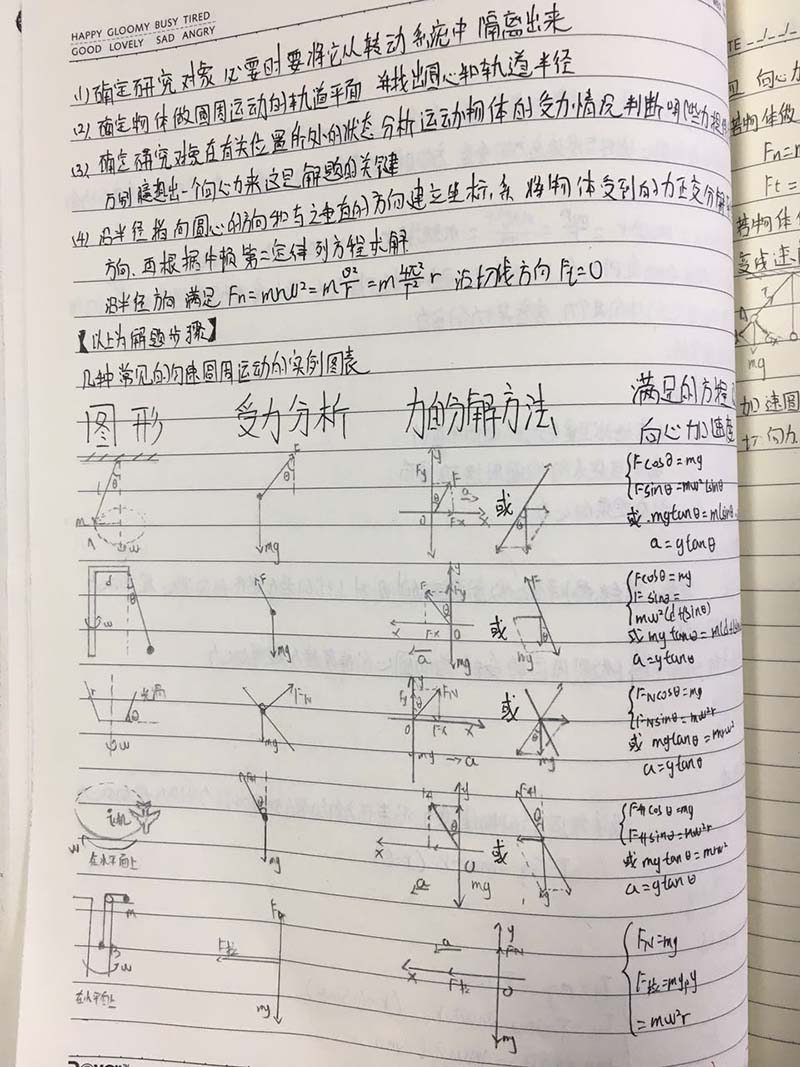 HAPPY GLOOMY BUSY TIRED
GOOD LOVELY SAD ANGRY
(1) 确定研究对象 必要时要将它从转动系统中 隔离出来
(2) 确定物体做圆周运动的轨道平面 并找出圆心和轨道半径
(3) 确定研究对象在有关位置所处的状态 分析运动物体的受力情况 判断哪些力提供
方别臆想出一个向心力来 这是解题的关键
(4) 沿半径指向圆心的方向和与之垂直的方向建立坐标系 将物体受到的力正交分解
方向 再根据牛顿第二定律列方程求解
沿半径方向 满足 Fn=mrω²=m v²/r=m 4π²/T² r 沿切线方向 Ft=0
【以上为解题步骤】
几种常见的匀速圆周运动的实例图表
图形 受力分析 力的分解方法 满足的方程
向心加速度
Fcosθ=mg
Fsinθ=mω²lsinθ
或 mgtanθ=mlsinθ
a=gtanθ
Fcosθ=mg
Fsinθ=
mω²(d+lsinθ)
或 mgtanθ=m(d+lsin
a=gtanθ
光滑
FNcosθ=mg
FNsinθ=mω²r
或 mgtanθ=mrω²
a=gtanθ
飞机
在水平面上
F升cosθ=mg
F升sinθ=mω²r
或 mgtanθ=mrω²
a=gtanθ
在水平面上
FN=mg
F拉=
=mω²r